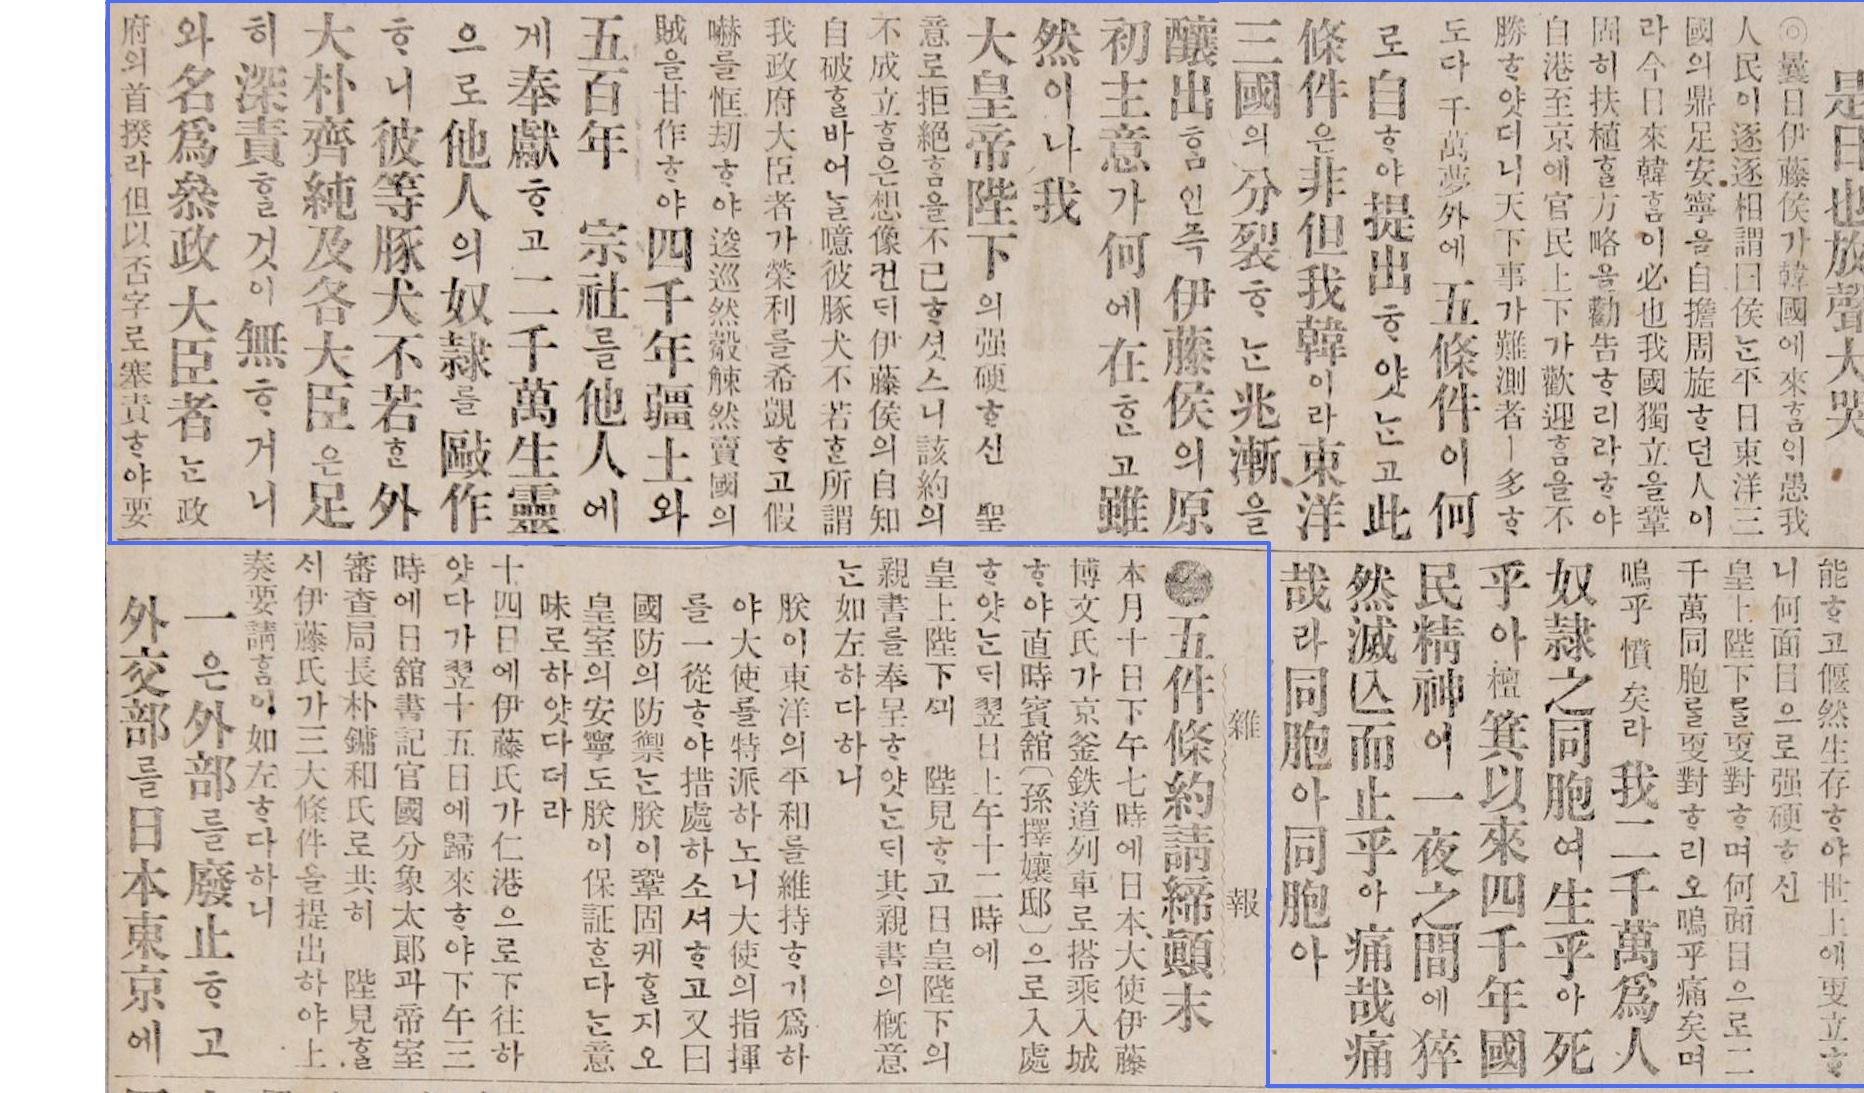 是日也放聲大哭
◎曩日伊藤侯가韓國에來ᄒᆞᆷᄋᆡ愚我
人民이逐逐相謂曰侯ᄂᆞᆫ平日東洋三
國의鼎足安寧을自擔周旋ᄒᆞ던人이
라今日來韓ᄒᆞᆷ이必也我國獨立을鞏
固히扶植ᄒᆞᆯ方略을勸告ᄒᆞ리라ᄒᆞ야
自港至京에官民上下가歡迎ᄒᆞᆷ을不
勝ᄒᆞ얏더니天下事가難測者ㅣ多ᄒᆞ
도다千萬夢外에五條件이何
로自ᄒᆞ야提出ᄒᆞ얏ᄂᆞᆫ고此
條件은非但我韓이라東洋
三國의分裂ᄒᆞᄂᆞᆫ兆漸을
釀出ᄒᆞᆷ인즉伊藤侯의原
初主意가何에在ᄒᆞᆫ고雖
然이나我
大皇帝陛下의强硬ᄒᆞ신 聖
意로拒絕ᄒᆞᆷ을不已ᄒᆞ셧스니該約의
不成立ᄒᆞᆷ은想像컨ᄃᆡ伊藤侯의自知
自破ᄒᆞᆯ바어ᄂᆞᆯ噫彼豚犬不若ᄒᆞᆫ所謂
我政府大臣者가榮利를希覬ᄒᆞ고假
嚇를恇刧ᄒᆞ야逡巡然觳觫然賣國의
賊을甘作ᄒᆞ야四千年疆土와
五百年 宗社를他人에
게奉獻ᄒᆞ고二千萬生靈
으로他人의奴隷를敺作
ᄒᆞ니彼等豚犬不若ᄒᆞᆫ外
大朴齊純及各大臣은足
히深責ᄒᆞᆯ것이無ᄒᆞ거니
와名爲叅政大臣者ᄂᆞᆫ政
府의首揆라但以否字로塞責ᄒᆞ야要
能ᄒᆞ고偃然生存ᄒᆞ야世上에更立ᄒᆞ
니何面目으로强硬ᄒᆞ신
皇上陛下를更對ᄒᆞ며何面目으로二
千萬同胞를更對ᄒᆞ리오嗚乎痛矣며
嗚乎憤矣라我二千萬爲人
奴隷之同胞여生乎아死
乎아檀箕以來四千年國
民精神이一夜之間에猝
然滅亡而止乎아痛哉痛
哉라同胞아同胞아
雜報
●五件條約請締顚末
本月十日下午七時에日本大使伊藤
博文氏가京釜鉄道列車로搭乘入城
ᄒᆞ야直時賓舘(孫擇孃邸)으로入處
ᄒᆞ얏ᄂᆞᆫᄃᆡ翌日上午十二時에
皇上陛下ᄭᅴ 陛見ᄒᆞ고日皇陛下의
親書를奉呈ᄒᆞ얏ᄂᆞᆫᄃᆡ其親書의槪意
ᄂᆞᆫ如左하다하니
朕이東洋의平和를維持ᄒᆞ기爲하
야大使를特派하노니大使의指揮
를一從ᄒᆞ야措處하소셔ᄒᆞ고又曰
國防의防禦ᄂᆞᆫ朕이鞏固케ᄒᆞᆯ지오
皇室의安寧도朕이保証ᄒᆞᆫ다ᄂᆞᆫ意
味로하얏다더라
十四日에伊藤氏가仁港으로下往하
얏다가翌十五日에歸來ᄒᆞ야下午三
時에日舘書記官國分象太郞과帝室
審査局長朴鏞和氏로共히 陛見ᄒᆞᆯ
ᄉᆡ伊藤氏가三大條件을提出하야上
奏要請ᄒᆞᆷ이如左ᄒᆞ다하니
一은外部를廢止ᄒᆞ고
外交部를日本東京에